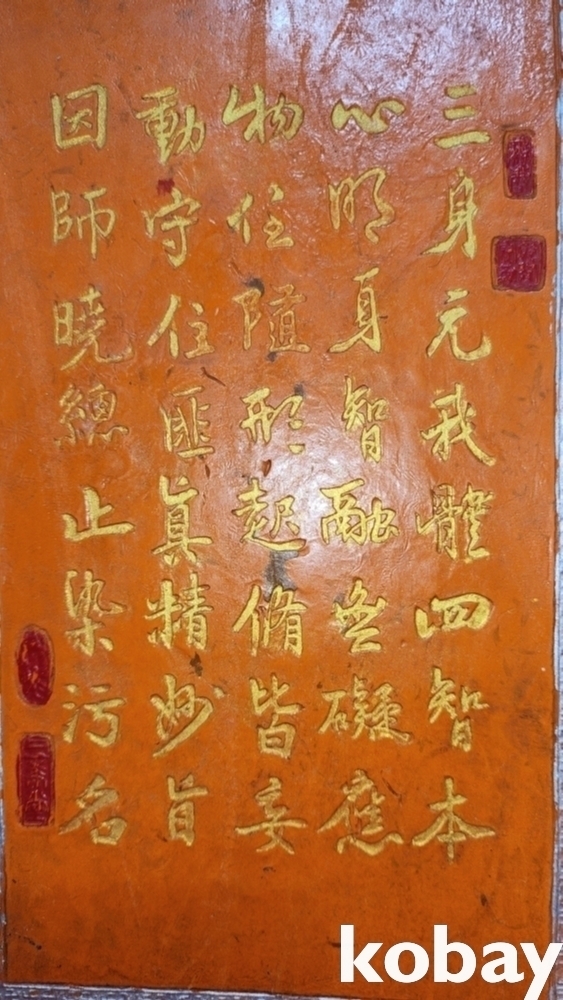 三身元我體四智本
心明身智融無礙應
物住隨形起脩皆妄
動守住匪眞精妙旨
因師曉總止染污名
kobay